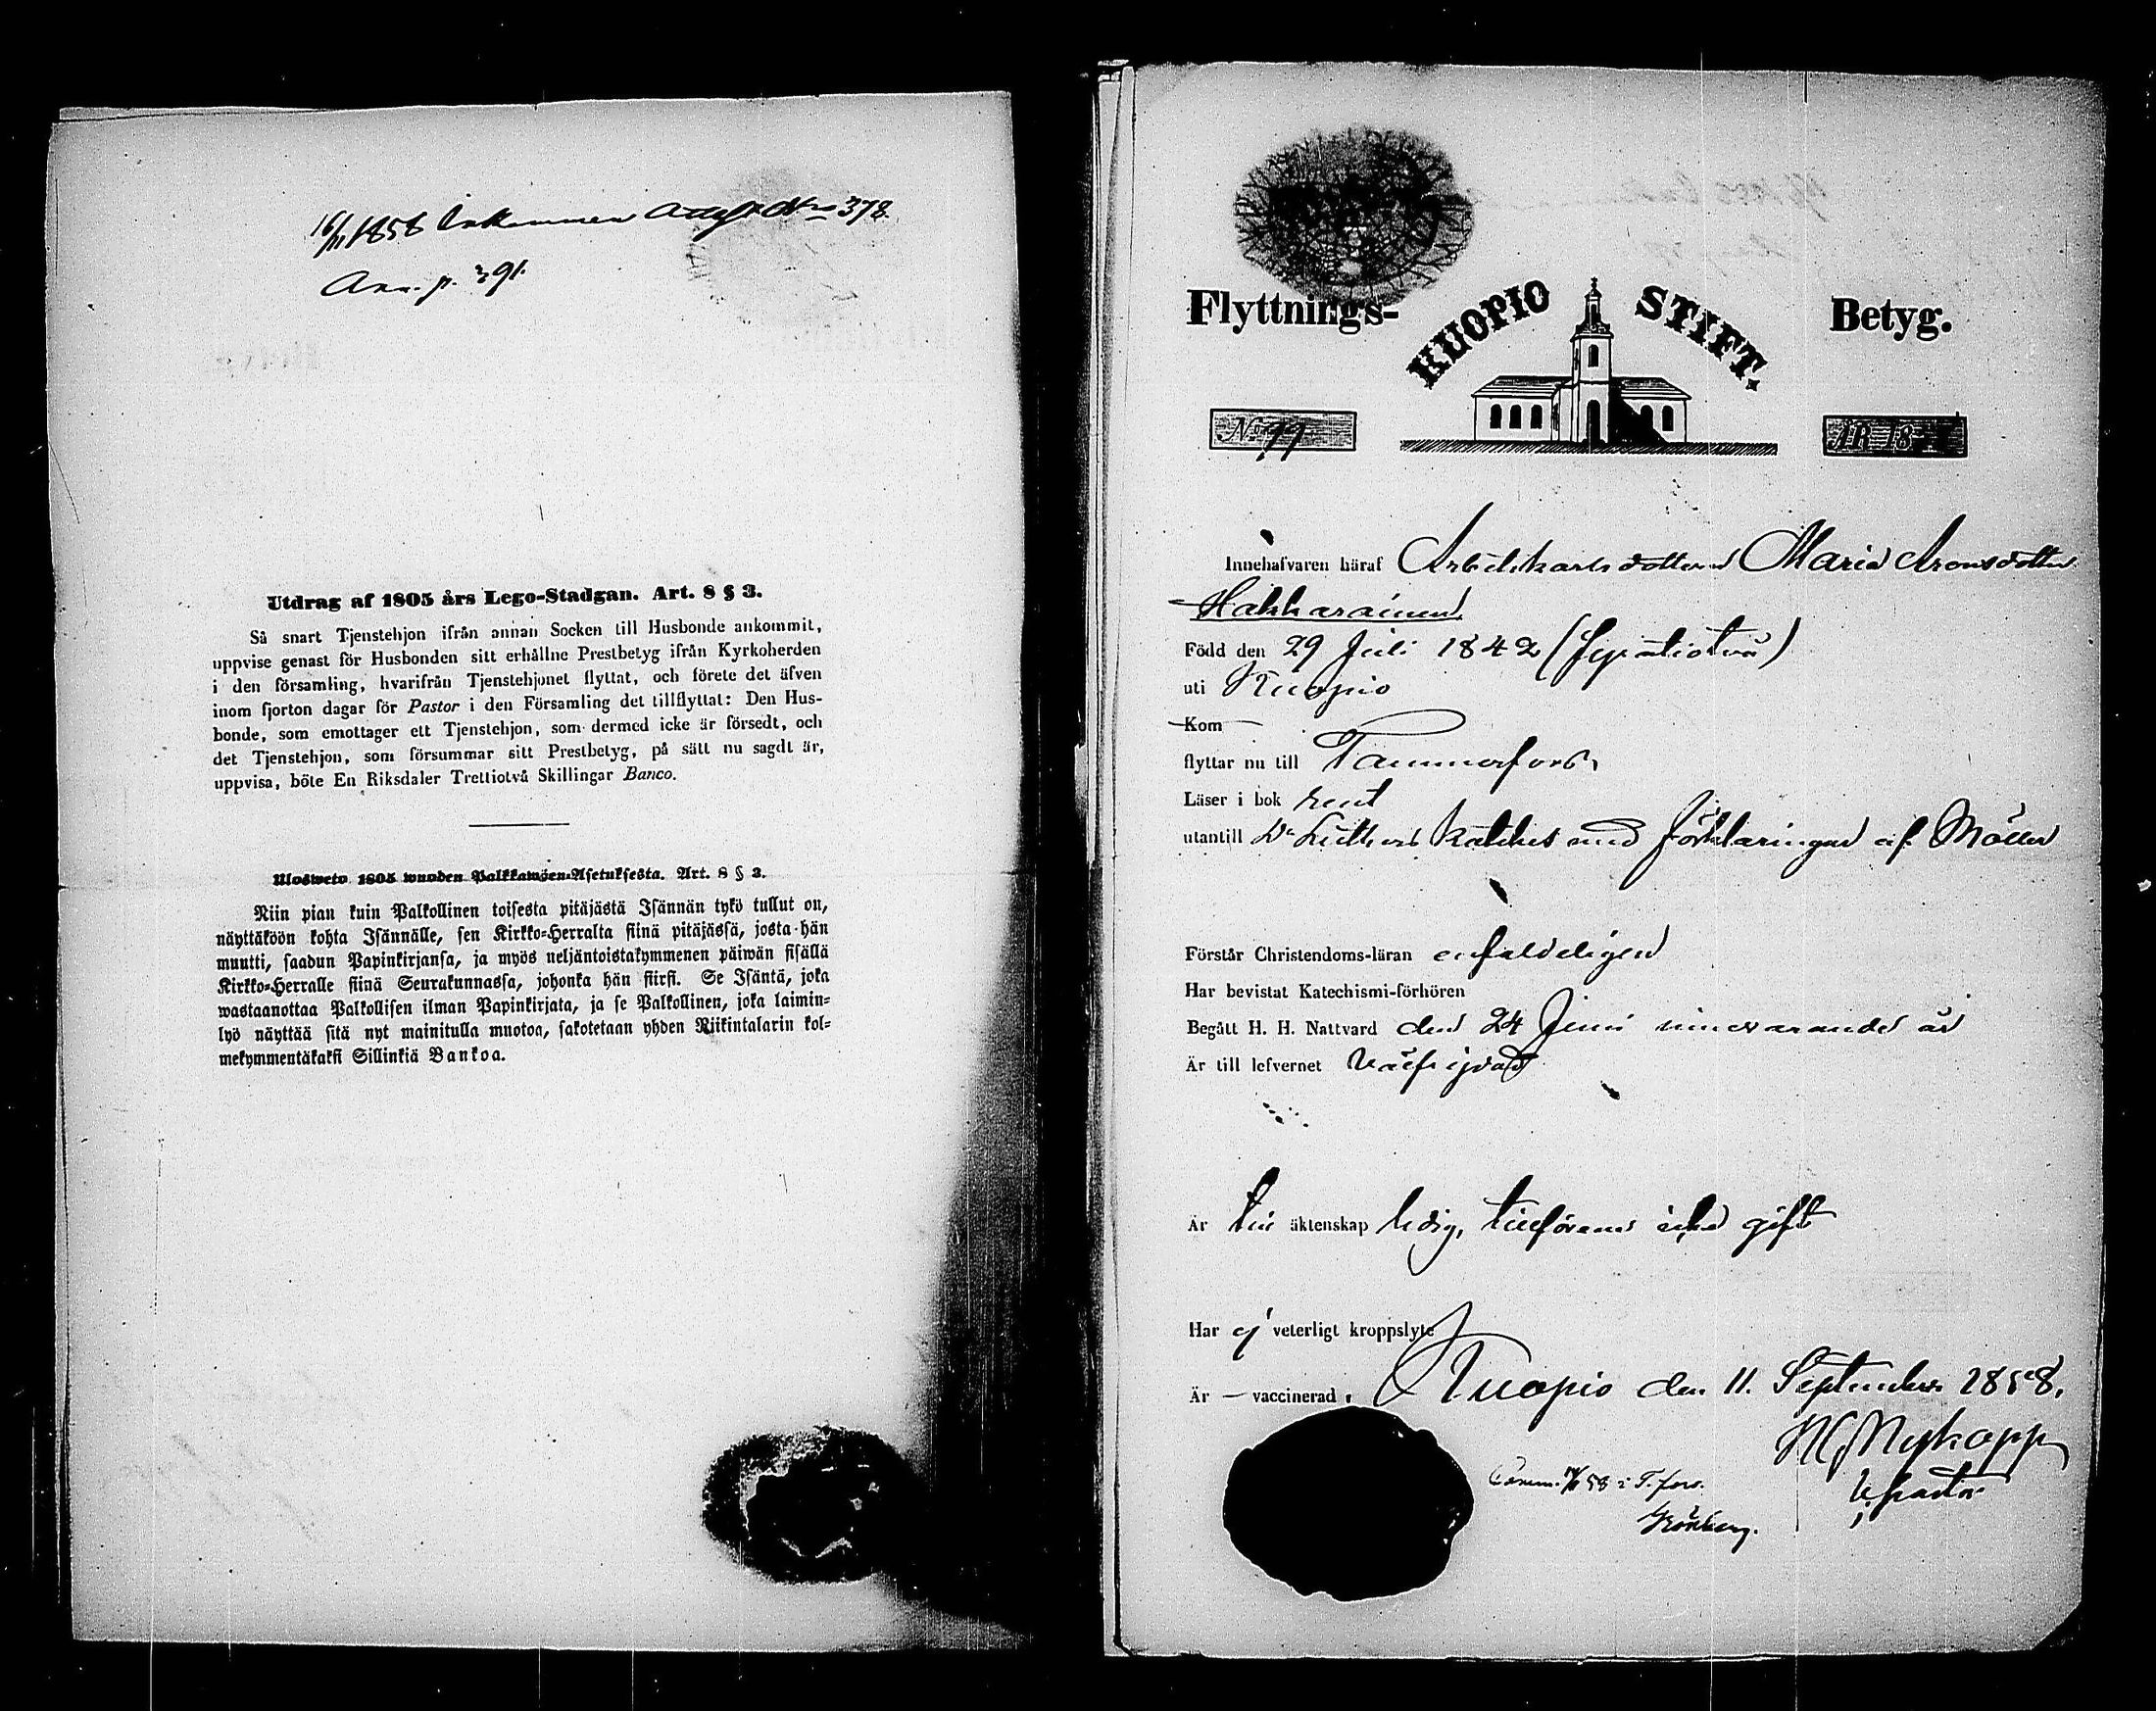 16/11 1858 Inkommen Attest No 378.
Ann. p. 391.
Utdrag af 1805 års Lego-Stadgan. Art. 8 § 3.
Så snart Tjenstehjon ifrån annan Socken till Husbonde ankommit,
uppvise genast för Husbonden sitt erhållne Prestbetyg ifrån Kyrkoherden
i den församling, hvarifrån Tjenstehjonet flyttat, och förete det äfven
inom fjorton dagar för Pastor i den Församling det tillflyttat: Den Hus-
bonde, som emottager ett Tjenstehjon, som dermed icke är försedt, och
det Tjenstehjon, som försummar sitt Prestbetyg, på sätt nu sagdt är,
uppvisa, böte En Riksdaler Trettiotvå Skillingar Banco.
Ulosweto 1805 wuoden Palkkawäen-Asetuksesta. Art. 8 § 3.
Niin pian kuin Palkollinen toisesta pitäjästä Isännän tykö tullut on,
näyttäköön kohta Isännälle, sen Kirkko-Herralta siinä pitäjässä, josta hän
muutti, saadun Papinkirjansa, ja myös neljäntoistakymmenen päiwän sisällä
Kirkko-Herralle siinä Seurakunnassa, johonka hän siirsi. Se Isäntä, joka
wastaanottaa Palkollisen ilman Papinkirjata, ja se Palkollinen, joka laimin-
lyö näyttää sitä nyt mainitulla muotoa, sakotetaan yhden Riikintalarin kol-
mekymmentäkaksi Sillinkiä Bankoa.
Flyttnings- KUOPIO STIFT. Betyg.
No 99 ÅR 18
Innehafvaren häraf Arbetskarlsdottren Maria Aronsdotter
Hakkarainen
Född den 29 Juli 1842 (fyratiotvå)
uti Kuopio
Kom
flyttar nu till Tammerfors
Läser i bok rent
utantill Dr Luthers Katekes med förklaringar af Möller
Förstår Christendoms-läran enfaldeligen
Har bevistat Katechismi-förhören
Begått H. H. Nattvard den 24 Juni innevarande år
Är till lefvernet välfrejdad
Är till äktenskap ledig, tillförene icke gift
Har ej veterligt kroppslyte
Är — vaccinerad. Kuopio den 11. September 1858.
Nykopp
V. pastor
58 i T.fors.